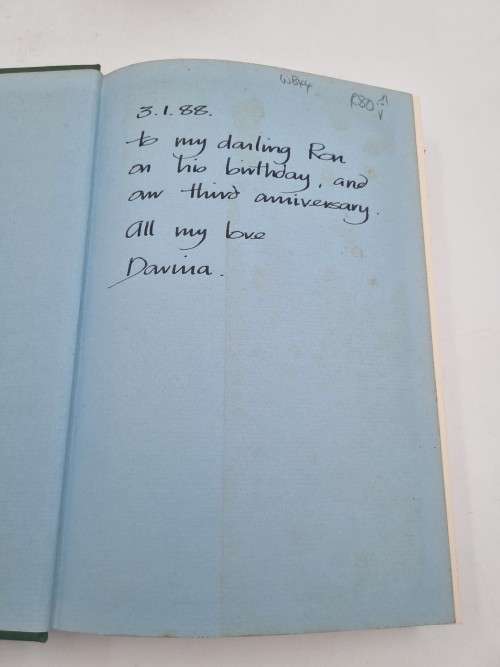 R80
3.1.88.
to my darling Ron
on his birthday, and
our third anniversary.
All my love
Davina.